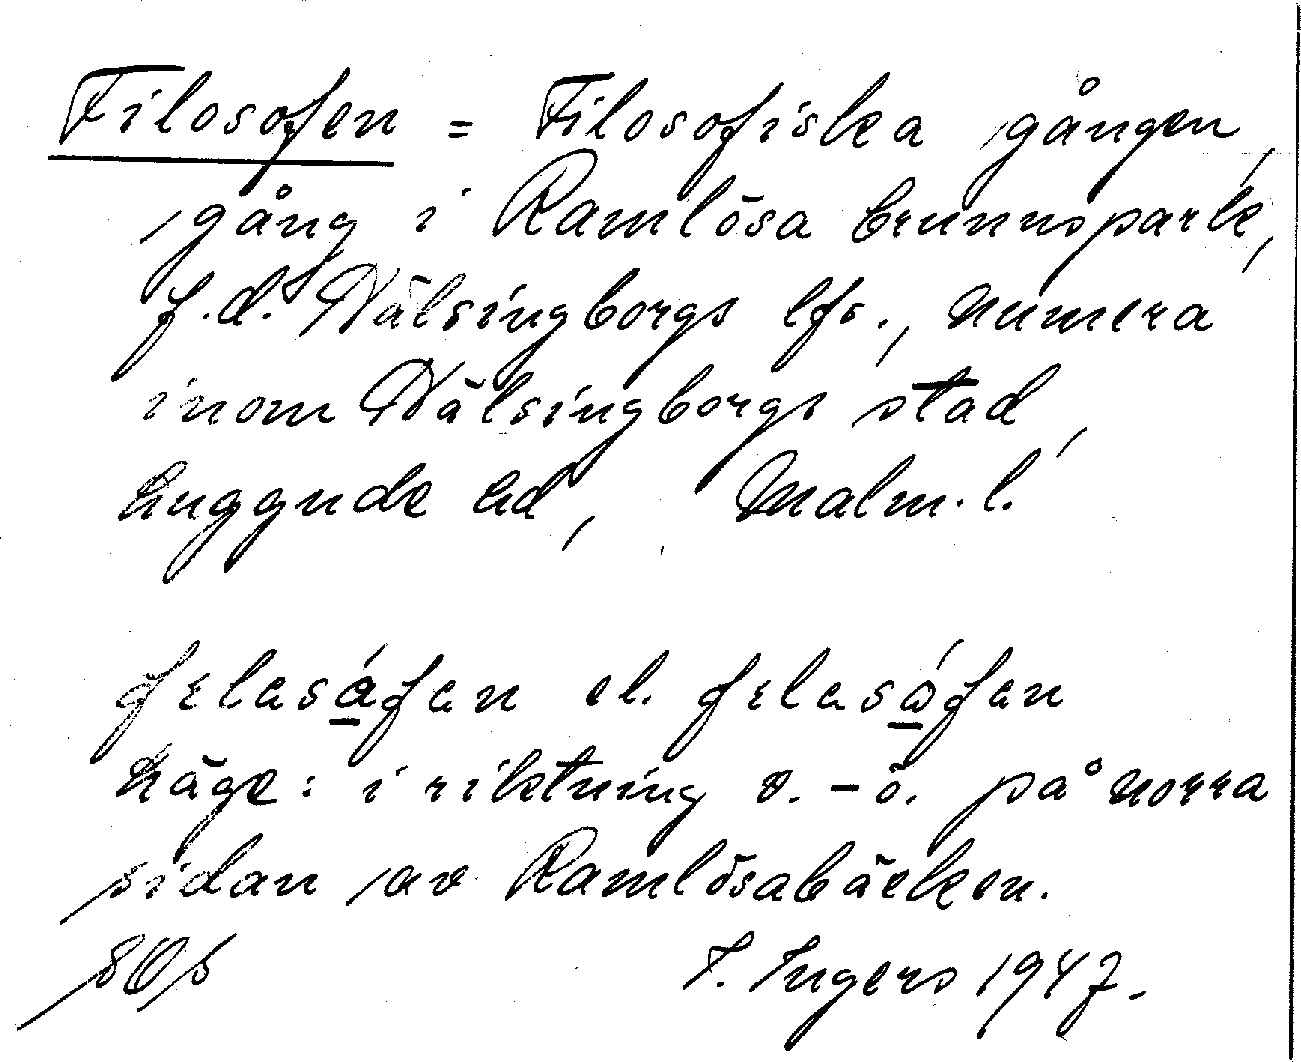 Filosofen = Filosofiska gången,
gång i Ramlösa brunnspark,
f.d. Hälsingborgs lfs., numera
inom Hälsingborgs stad,
Luggude hd, Malm. l.
felasåfan el. felasåfan
Läge: i riktning v. – ö. på norra
sidan av Ramlösabäcken.
I. Ingers 1947.